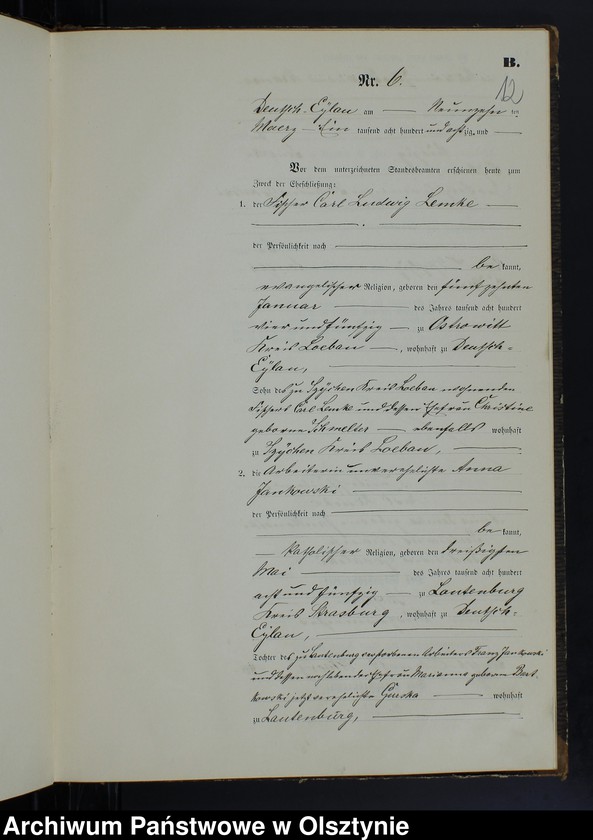 B.
Nr. 6.
12
Deutsch-Eylau am Neunzehn ten
Maerz Ein tausend acht hundert und achtzig und
Vor dem unterzeichneten Standesbeamten erschienen heute zum
Zweck der Eheschließung:
1. der Fischer Carl Ludwig Lemke
der Persönlichkeit nach
be kannt,
evangelischer Religion, geboren den fünfzehnten
Januar des Jahres tausend acht hundert
vier und fünfzig zu Ostrowitt
Kreis Loebau, wohnhaft zu Deutsch-
Eylau,
Sohn des zu Kreis Loebau wohnenden
Fischers Carl Lemke und dessen Ehefrau Christine
geborne ebenfalls wohnhaft
zu Kreis Loebau,
2. die Arbeiterin unverehelichte Anna
Jankowski
der Persönlichkeit nach
be kannt,
katholischer Religion, geboren den dreißigsten
Mai des Jahres tausend acht hundert
acht und fünfzig zu Lautenburg
Kreis Strasburg, wohnhaft zu Deutsch-
Eylau,
Tochter des zu Lautenburg verstorbenen Arbeiters Franz Jankowski
und dessen nachlebender Ehefrau Marianna geboren
jetzt verehelichte wohnhaft
zu Lautenburg,
Archiwum Państwowe w Olsztynie